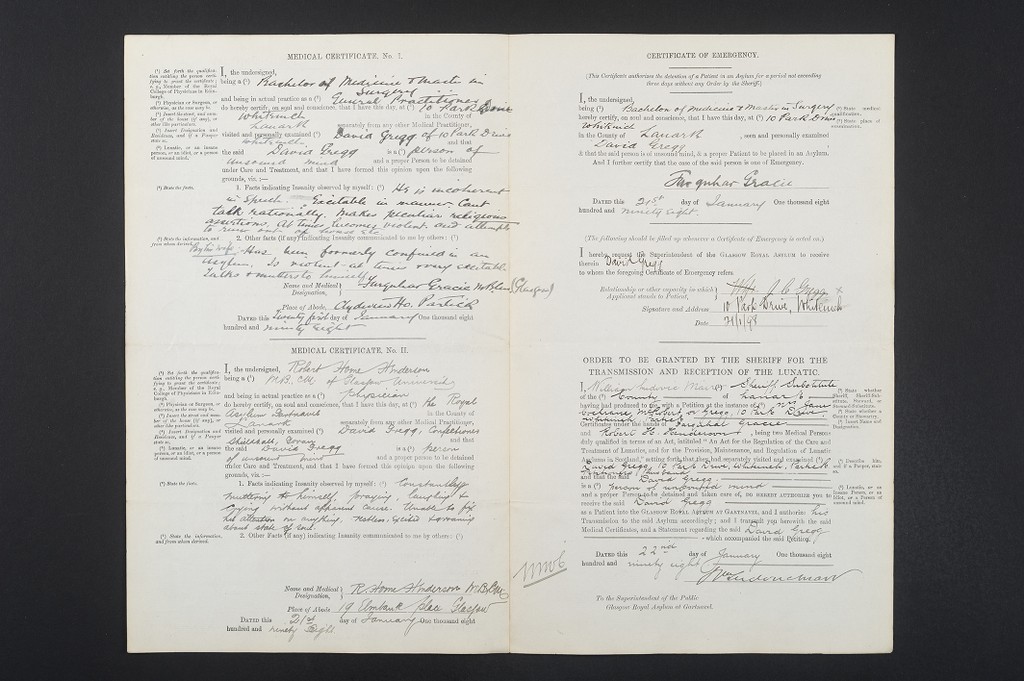 MEDICAL CERTIFICATE, No. I.
(¹) Set forth the qualifica-
tion entitling the person certi-
fying to grant the certificate;
e.g., Member of the Royal
College of Physicians in Edin-
burgh.
(²) Physician or Surgeon, or
otherwise, as the case may be.
(³) Insert Designation and
Residence, and if a Pauper
state so.
(⁵) Lunatic, or an insane
person, or an idiot, or a person
of unsound mind.
(⁶) State the facts.
(⁷) State the information, and
from whom derived.
I, the undersigned,
being a (¹) Bachelor of Medicine & Master in
Surgery
and being in actual practice as a (²) General Practitioner
do hereby certify, on soul and conscience, that I have this day, at (³) 10 Park Drive
Whiteinch in the County of
Lanark separately from any other Medical Practitioner,
visited and personally examined (⁴) David Gregg of 10 Park Drive
Whiteinch and that
the said David Gregg is a (⁵) person of
unsound mind and a proper Person to be detained
under Care and Treatment, and that I have formed this opinion upon the following
grounds, viz.:—
1. Facts indicating Insanity observed by myself: (⁶) He is incoherent
in speech. Excitable in manner. Cant
talk rationally. Makes peculiar religious
assertions. At times becomes violent and attempts
to run out of
2. Other facts (if any) indicating Insanity communicated to me by others: (⁷)
By his wife: Has been formerly confined in an
asylum. Is violent at times & very excitable.
Talks & mutters to himself
Name and Medical Designation, Farquhar Gracie M.B.C.M. (Glasgow)
Place of Abode, Clydeview Ho. Partick
DATED this Twenty first day of January One thousand eight
hundred and ninety eight
MEDICAL CERTIFICATE, No. II.
(¹) Set forth the qualifica-
tion entitling the person certi-
fying to grant the certificate;
e.g., Member of the Royal
College of Physicians in Edin-
burgh.
(²) Physician or Surgeon, or
otherwise, as the case may be.
(⁶) State the facts.
(⁷) State the information,
and from whom derived.
I, the undersigned, Robert Home Henderson
being a (¹) M.B. C.M. of Glasgow University
and being in actual practice as a (²) physician
do hereby certify, on soul and conscience, that I have this day, at (³) the Royal
Asylum Gartnavel in the County of
Lanark separately from any other Medical Practitioner,
visited and personally examined (⁴) David Gregg, Confectioner
Govan and that
the said David Gregg is a (⁵) person
of unsound mind and a proper person to be detained
under Care and Treatment, and that I have formed this opinion upon the following
grounds, viz.:—
1. Facts indicating Insanity observed by myself: (⁶) Constantly
muttering to himself, praying, laughing &
crying without apparent cause. Unable to fix
his attention on anything. restless, excited & raving
about state of soul.
2. Other Facts (if any) indicating Insanity communicated to me by others: (⁷)
Name and Medical Designation, R. Home Henderson M.B.C.M.
Place of Abode 19 Place Glasgow
DATED this 21st day of January One thousand eight
hundred and ninety Eight.
CERTIFICATE OF EMERGENCY.
(This Certificate authorises the detention of a Patient in an Asylum for a period not exceeding
three days without any Order by the Sheriff.)
I, the undersigned,
being (¹) Bachelor of Medicine & Master in Surgery
(¹) State medical
qualification.
hereby certify, on soul and conscience, that I have this day, at (²) 10 Park Drive
(²) State place of
examination.
Whiteinch
in the County of Lanark, seen and personally examined
David Gregg
& that the said person is of unsound mind, & a proper Patient to be placed in an Asylum.
And I further certify that the case of the said person is one of Emergency.
Farquhar Gracie
DATED this 21st day of January One thousand eight
hundred and ninety eight.
(The following should be filled up whenever a Certificate of Emergency is acted on.)
I hereby request the Superintendent of the GLASGOW ROYAL ASYLUM to receive
therein David Gregg
to whom the foregoing Certificate of Emergency refers.
Relationship or other capacity in which Applicant stands to Patient, J C Gregg
Signature and Address 10 Park Drive, Whiteinch
Date 21/1/98
ORDER TO BE GRANTED BY THE SHERIFF FOR THE
TRANSMISSION AND RECEPTION OF THE LUNATIC.
I, William Ludovic Mair (¹) Sheriff Substitute
of the (²) County of Lanark
having had produced to me, with a Petition at the instance of (³) Mrs Jane
Cochrane McRobert or Gregg, 10 Park Drive,
Whiteinch, Partick
Certificates under the hands of Farquhar Gracie
and Robert H. Henderson, being two Medical Persons
duly qualified in terms of an Act, intituled "An Act for the Regulation of the Care and
Treatment of Lunatics, and for the Provision, Maintenance, and Regulation of Lunatic
Asylums in Scotland," setting forth, that they had separately visited and examined (⁴)
David Gregg, 10 Park Drive, Whiteinch, Partick
Petitioner's husband
and that the said David Gregg
is a (⁵) person of unsound mind
and a proper Person to be detained and taken care of, DO HEREBY AUTHORISE you to
receive the said David Gregg
as a Patient into the GLASGOW ROYAL ASYLUM AT GARTNAVEL, and I authorise his
Transmission to the said Asylum accordingly; and I transmit you herewith the said
Medical Certificates, and a Statement regarding the said David Gregg
which accompanied the said Petition.
DATED this 22nd day of January One thousand eight
hundred and ninety eight
Wm Ludovic Mair
To the Superintendent of the Public
Glasgow Royal Asylum at Gartnavel.